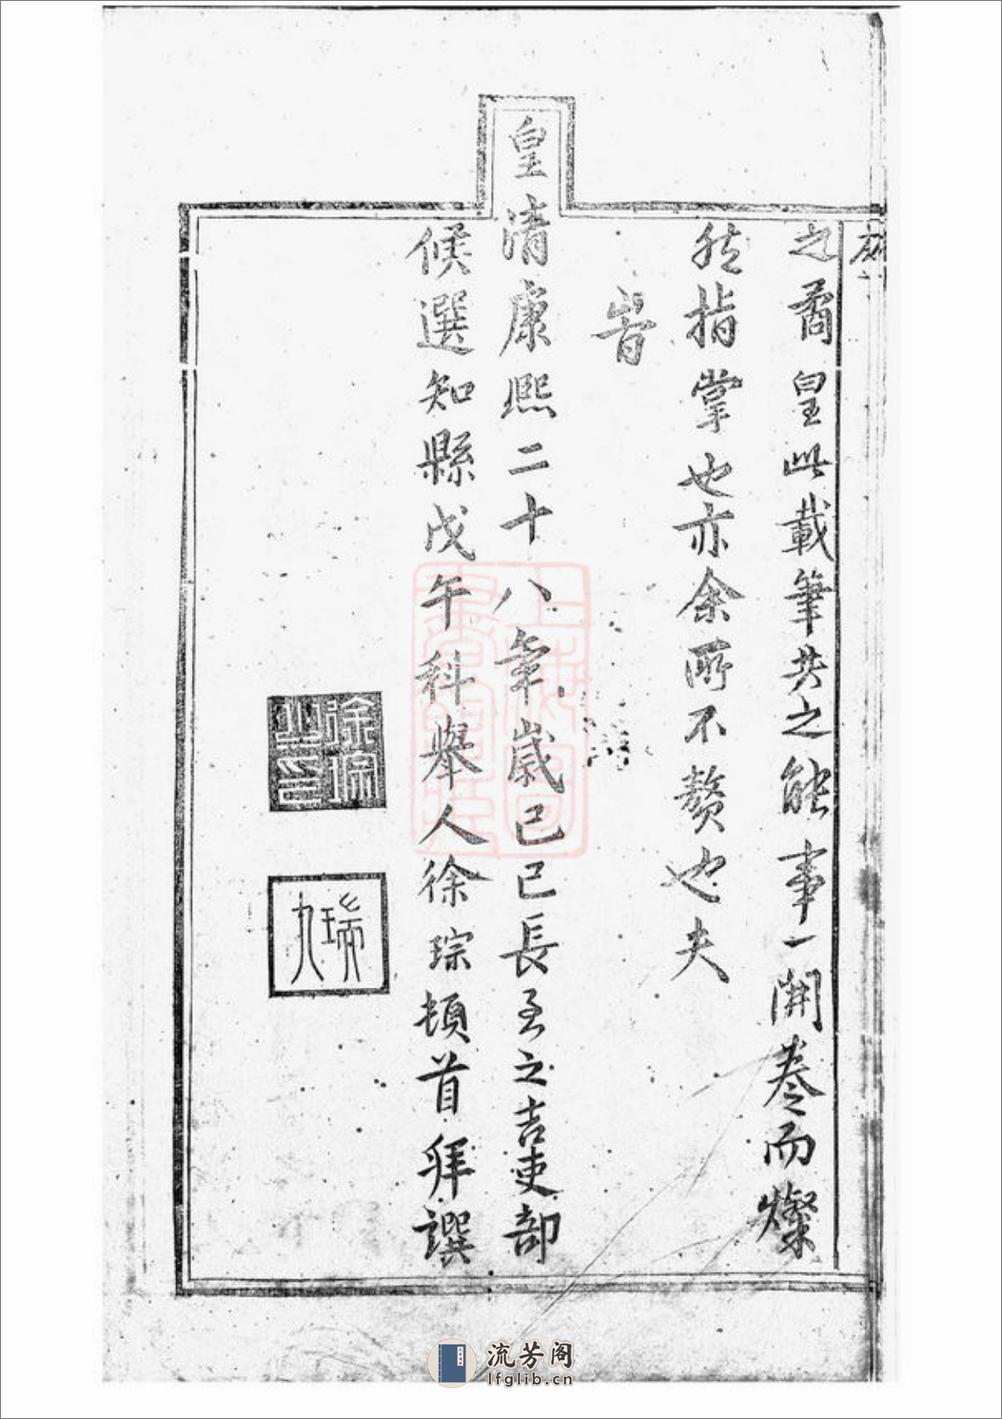 之矞皇此載筆共之能事一開卷而燦
然指掌也亦余所不贅也夫
峕
皇清康熙二十八年歲己巳長至之吉吏部
候選知縣戊午科舉人徐琮頓首拜譔
徐琮之印
瑞九
上海圖書館藏
流芳阁
lfglib.cn